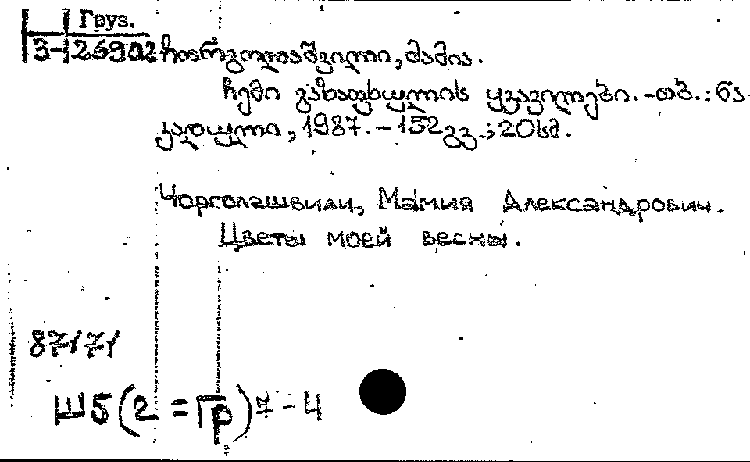 Груз.
3-126902 ჩორგოლაშვილი, მამია.
ჩემი გაზაფხულის ყვავილები. -თბ.: ნა-
კადული, 1987. - 152 გვ.; 20 სმ.
Чорголашвили, Мамия Александрович.
Цветы моей весны.
87/71
Ш5(2=Гр)7-4